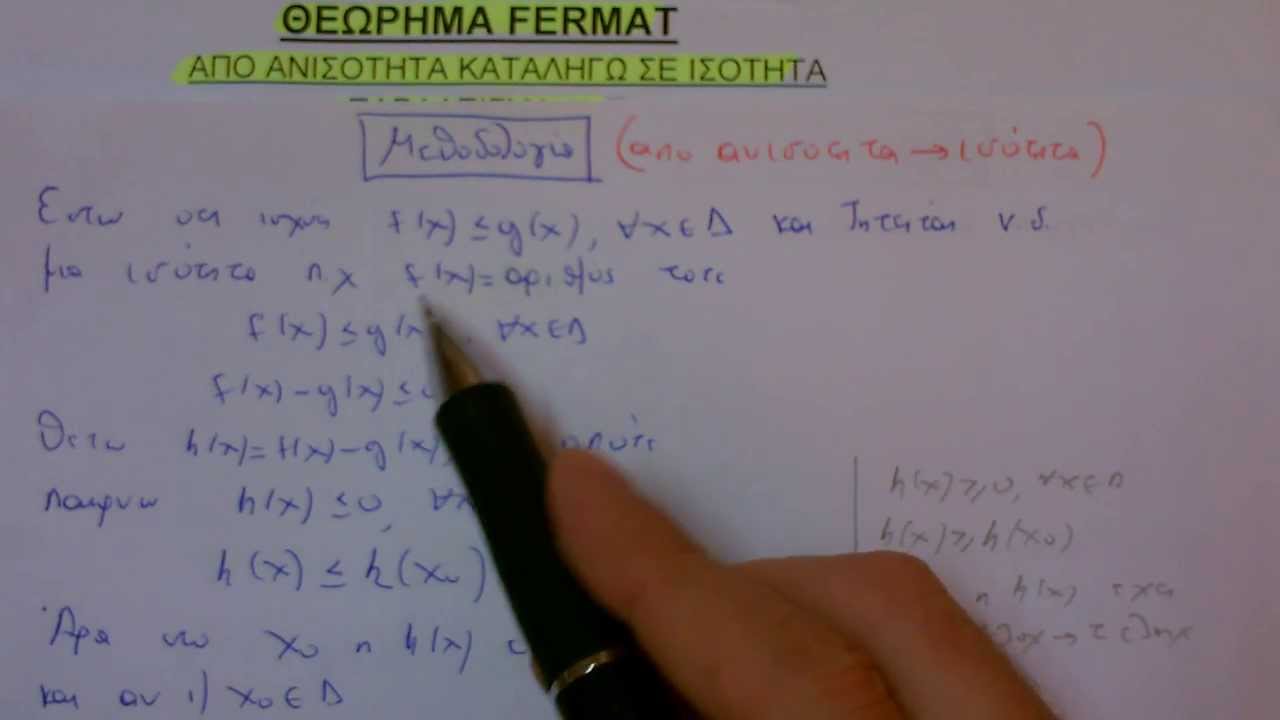 ΘΕΩΡΗΜΑ FERMAT
ΑΠΟ ΑΝΙΣΟΤΗΤΑ ΚΑΤΑΛΗΓΩ ΣΕ ΙΣΟΤΗΤΑ
Μεθοδολογία (απο ανισοτητα → ισότητα)
Εστω οτι ισχυει f(x) ≤ g(x), ∀x∈Δ και ζητείται ν.δ.
μια ισότητα π.χ f(x) = αριθμος τοτε
f(x) ≤ g(x ∀x∈Δ
f(x) - g(x) ≤
Θετω h(x) = f(x) - g(x) οπότε
παιρνω h(x) ≤ 0,
h(x) ≤ h(x₀)
Άρα στο x₀ η h(x)
και αν i) x₀ ∈ Δ
h(x) ≥ 0, ∀x∈Δ
h(x) ≥ h(x₀)
η h(x) εχει